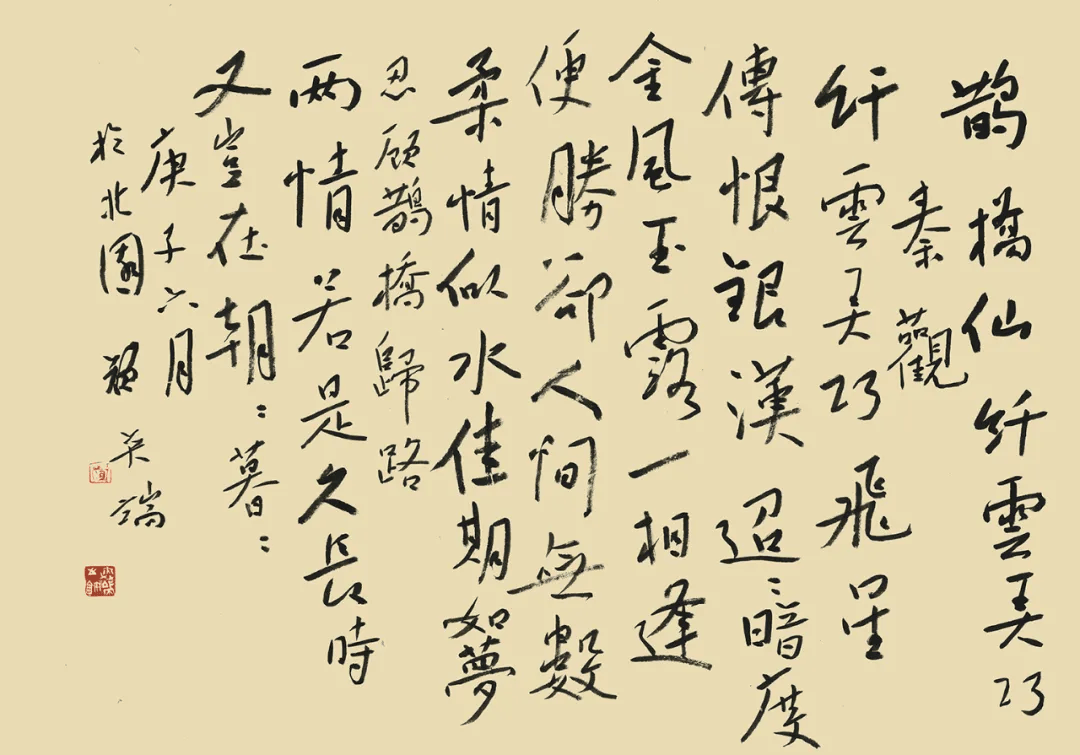 鵲橋仙纤雲弄巧
秦觀
纤雲弄巧飛星
傳恨銀漢迢〻暗度
金風玉露一相逢
便勝卻人間無數
柔情似水佳期如夢
忍顧鵲橋歸路
两情若是久長時
又豈在朝〻暮〻
庚子六月
於北園 端